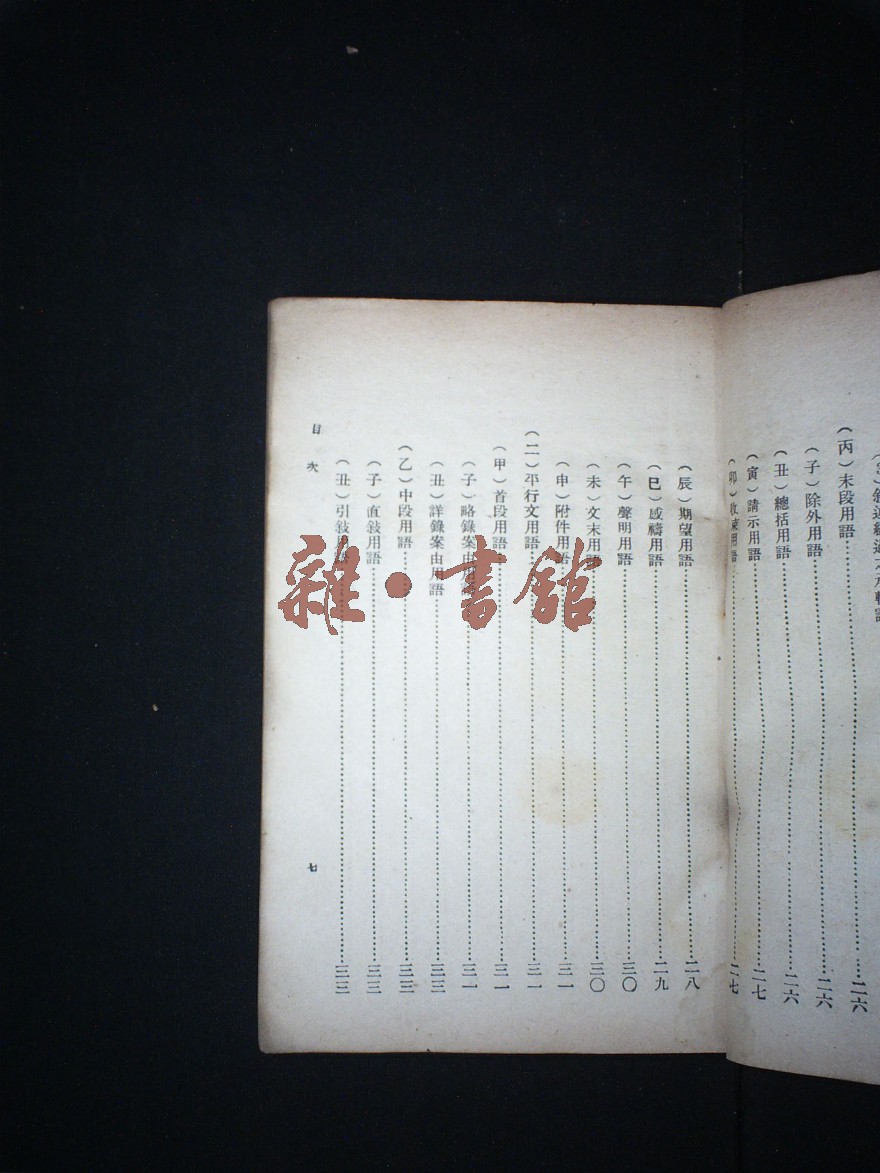 (丙)末段用語……二六
(子)除外用語……二六
(丑)總括用語……二六
(寅)請示用語……二七
(卯)收束用語……二七
(辰)期望用語……二八
(巳)感禱用語……二九
(午)聲明用語……三〇
(未)文末用語……三〇
(申)附件用語……三一
(二)平行文用語……三一
(甲)首段用語……三一
(子)略錄案由用語……三一
(丑)詳錄案由用語……三三
(乙)中段用語……三三
(子)直敍用語……三三
(丑)引敍用語……三三
目次
七
雜·書館